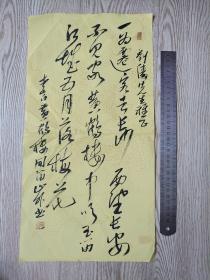 刘涛先生雅正
一为迁客去长沙 西望长安
不见家 黄鹤楼中吹玉笛
江城五月落梅花
李白黄鹤楼闻笛